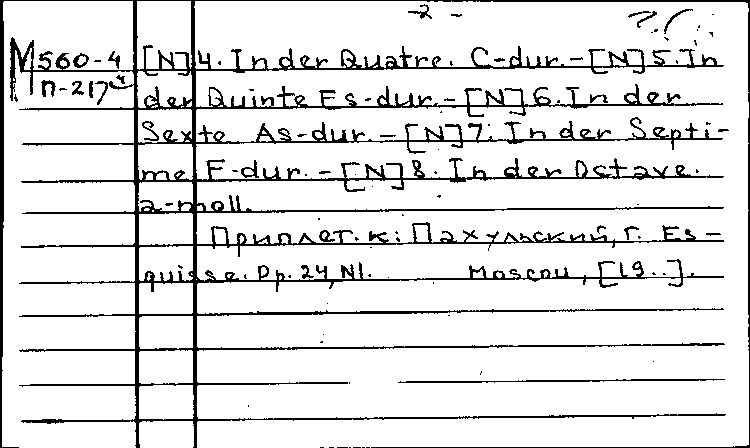 -2-
М560-4 [N]4. In der Quatre. C-dur.-[N]5. In
П-217 der Quinte Es-dur.-[N]6. In der
Sexte As-dur.-[N]7. In der Septi-
me F-dur.-[N]8. In der Octave.
a-moll.
Приплет. к: Пахульский, Г. Es-
quisse. Op. 24, N1. Moscou, [19..].